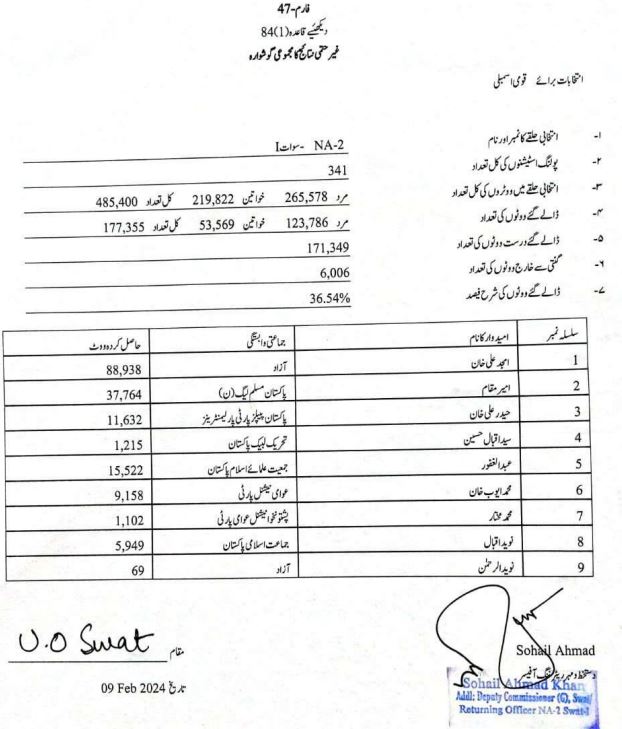 فارم-47
دیکھیئے قاعدہ(1)84
غیر حتمی نتائج کا مجموعی گوشوارہ
انتخابات برائے قومی اسمبلی
۱- انتخابی حلقے کا نمبر اور نام NA-2 -سوات-I
۲- پولنگ اسٹیشنوں کی کل تعداد 341
۳- انتخابی حلقے میں ووٹروں کی کل تعداد مرد 265,578 خواتین 219,822 کل تعداد 485,400
۴- ڈالے گئے ووٹوں کی تعداد مرد 123,786 خواتین 53,569 کل تعداد 177,355
۵- ڈالے گئے درست ووٹوں کی تعداد 171,349
۶- گنتی سے خارج ووٹوں کی تعداد 6,006
۷- ڈالے گئے ووٹوں کی شرح فیصد 36.54%
سلسلہ نمبر امیدوار کا نام جماعتی وابستگی حاصل کردہ ووٹ
1 امجد علی خان آزاد 88,938
2 امیر مقام پاکستان مسلم لیگ (ن) 37,764
3 حیدر علی خان پاکستان پیپلز پارٹی پارلیمنٹیرینز 11,632
4 سید اقبال حسین تحریک لبیک پاکستان 1,215
5 عبدالغفور جمعیت علمائے اسلام پاکستان 15,522
6 محمد ایوب خان عوامی نیشنل پارٹی 9,158
7 محمد مختار پشتونخوا نیشنل عوامی پارٹی 1,102
8 نوید اقبال جماعت اسلامی پاکستان 5,949
9 نوید الرحمٰن آزاد 69
مقام U.O Swat
Sohail Ahmad
دستخط و مہر ریٹرننگ آفیسر
تاریخ 09 Feb 2024
Sohail Ahmad Khan
Addl: Deputy Commissioner (G), Swat/
Returning Officer NA-2 Swat-I